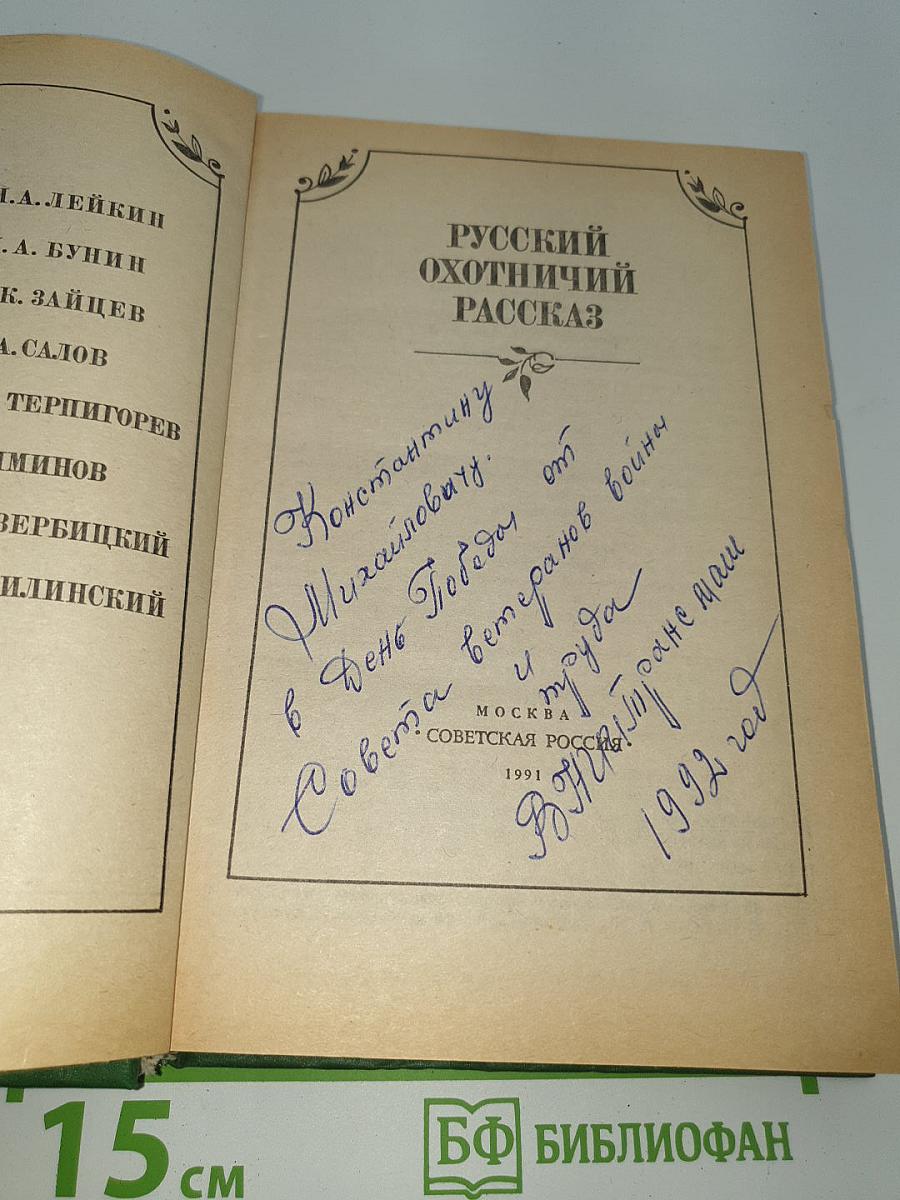 Н.А. ЛЕЙКИН
И.А. БУНИН
К. ЗАЙЦЕВ
А. САЛОВ
ТЕРПИГОРЕВ
ИМИНОВ
ЗЕРБИЦКИЙ
ИЛИНСКИЙ
РУССКИЙ
ОХОТНИЧИЙ
РАССКАЗ
Константину
Михайловичу.
в День Победы от
Совета ветеранов войны
и труда
ВНИИТрансмаш
1992 год
МОСКВА
"СОВЕТСКАЯ РОССИЯ"
1991
15 см
БФ БИБЛИОФАН